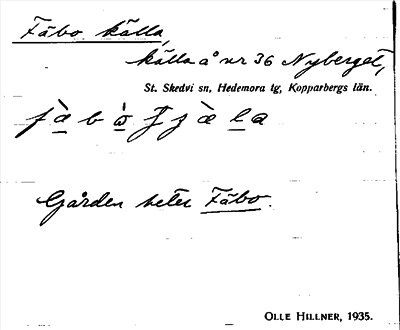 Fäbo källa,
källa å nr 36 Nyberget,
St. Skedvi sn, Hedemora tg, Kopparbergs län.
Gården heter Fäbo.
OLLE HILLNER, 1935.